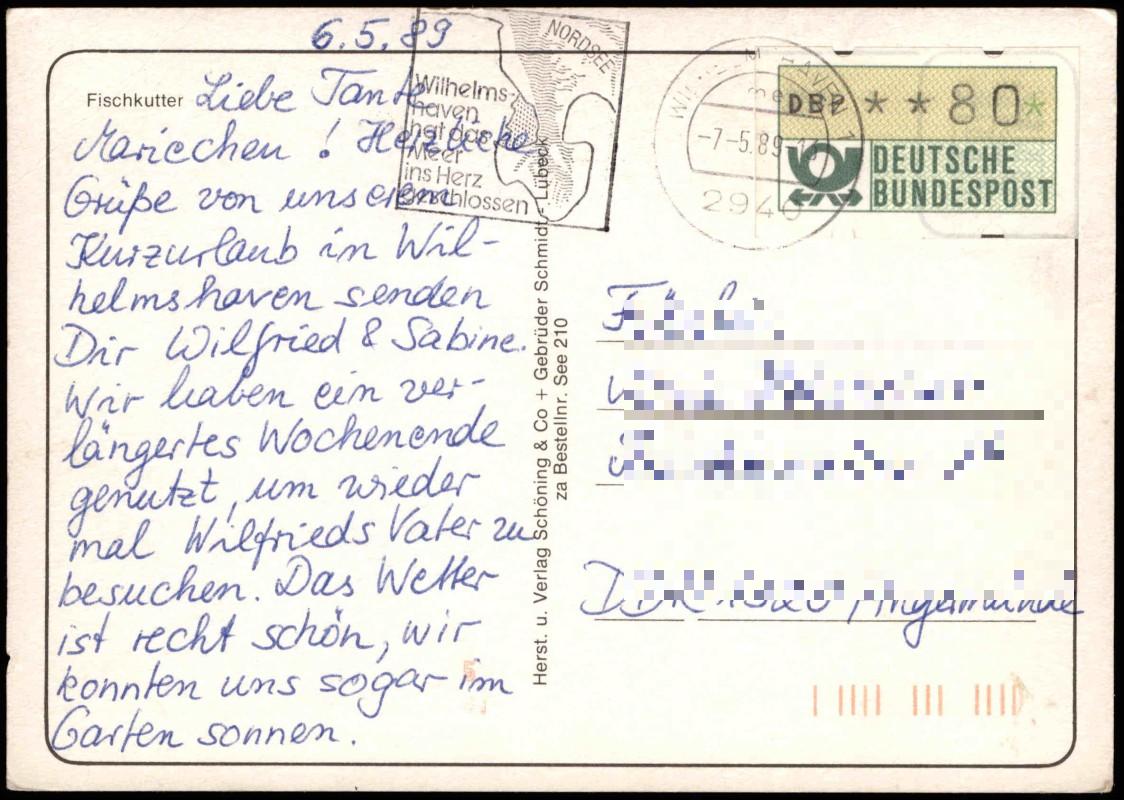 6.5.89
Fischkutter
Liebe Tante
Mariechen! Herzliche
Grüße von unserem
Kurzurlaub in Wil-
helmshaven senden
Dir Wilfried & Sabine.
Wir haben ein ver-
längertes Wochenende
genutzt, um wieder
mal Wilfrieds Vater zu
besuchen. Das Wetter
ist recht schön, wir
konnten uns sogar im
Garten sonnen.
NORDSEE
Wilhelms-
haven
hat das
Meer
ins Herz
geschlossen
-7-5.89-
2940
DBP **80*
DEUTSCHE
BUNDESPOST
Herst. u. Verlag Schöning & Co + Gebrüder Schmidt - Lübeck
za Bestellnr. See 210